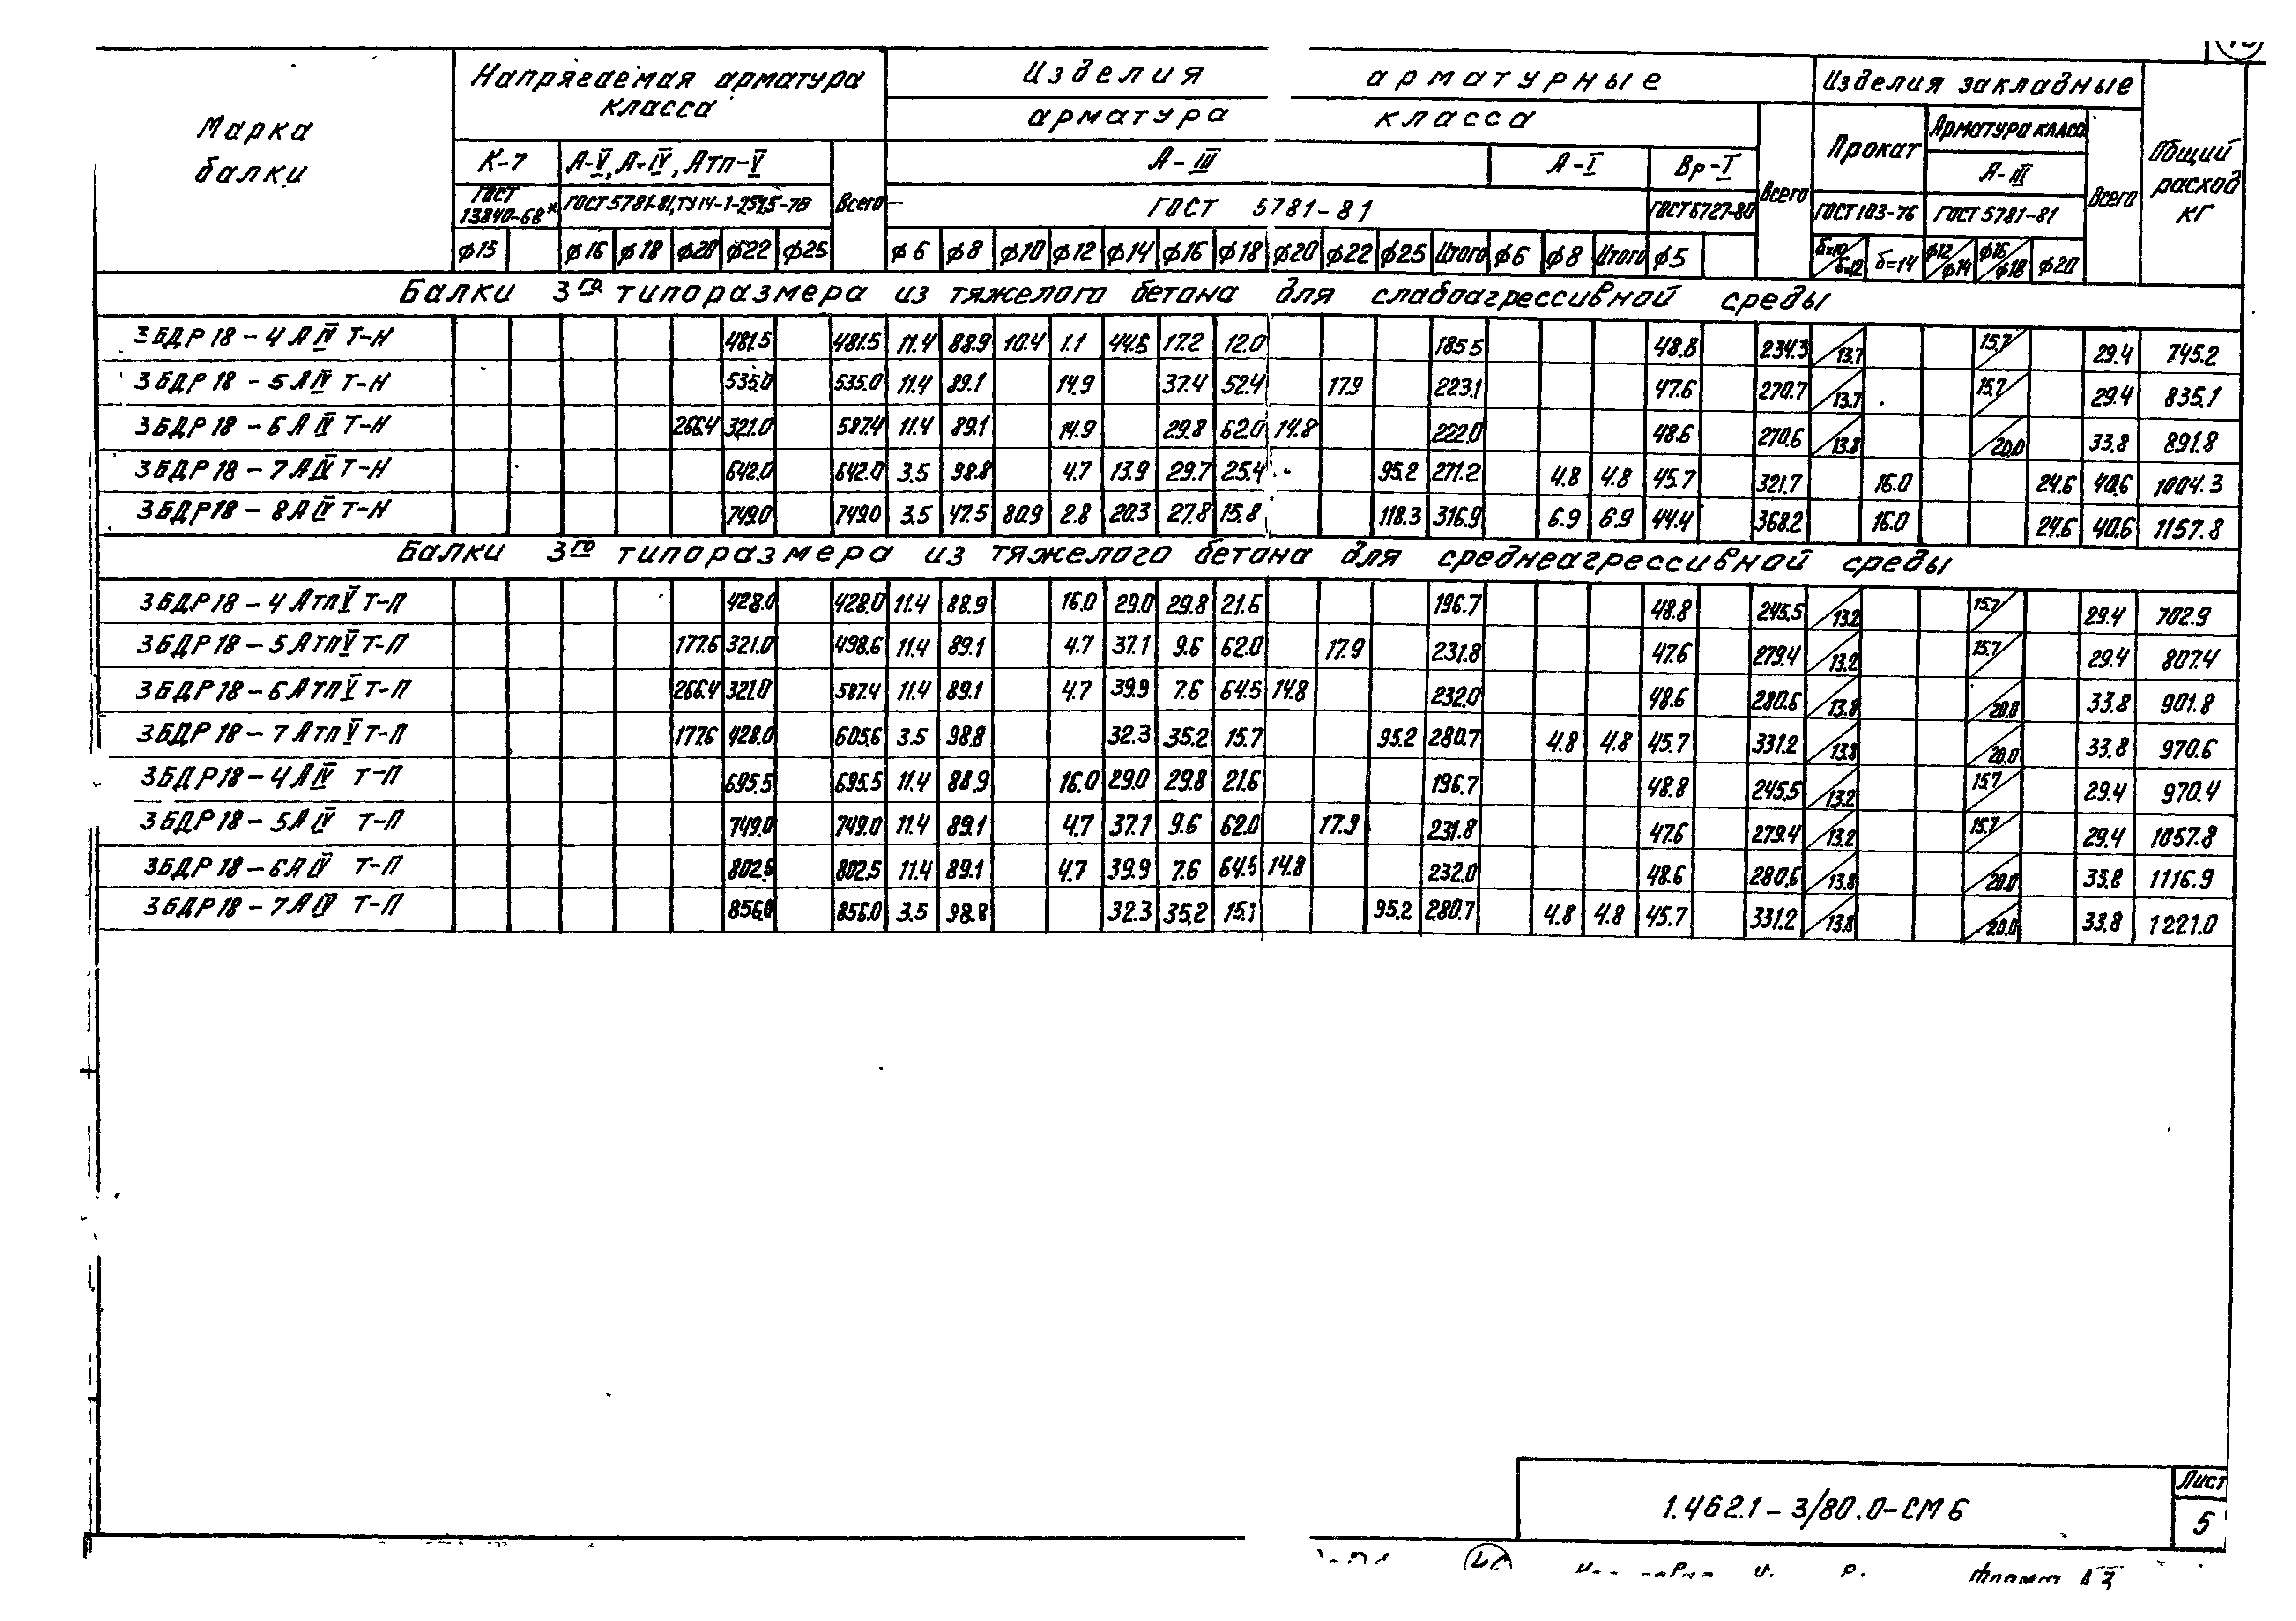 Марка балки
Напрягаемая арматура класса
Изделия арматурные
Изделия закладные
Общий расход кг
арматура класса
Прокат
Арматура класса
К-7
А-V, А-IV, Атп-V
Всего
А-III
А-I
Вр-I
Всего
А-III
Всего
ГОСТ 13840-68*
ГОСТ 5781-81, ТУ14-1-2525-78
ГОСТ 5781-81
ГОСТ 6727-80
ГОСТ 103-76
ГОСТ 5781-81
ф15 ф16 ф18 ф20 ф22 ф25 ф6 ф8 ф10 ф12 ф14 ф16 ф18 ф20 ф22 ф25 Итого ф6 ф8 Итого ф5 δ=10/δ=12 δ=14 ф12/ф14 ф16/ф18 ф20
Балки 3го типоразмера из тяжелого бетона для слабоагрессивной среды
3БДР18-4АIVТ-Н 481.5 481.5 11.4 88.9 10.4 1.1 44.5 17.2 12.0 185.5 48.8 234.3 /13.7 15.7/ 29.4 745.2
3БДР18-5АIVТ-Н 535.0 535.0 11.4 89.1 14.9 37.4 52.4 17.9 223.1 47.6 270.7 /13.7 15.7/ 29.4 835.1
3БДР18-6АIVТ-Н 266.4 321.0 587.4 11.4 89.1 14.9 29.8 62.0 14.8 222.0 48.6 270.6 /13.8 /20.0 33.8 891.8
3БДР18-7АIVТ-Н 642.0 642.0 3.5 98.8 4.7 13.9 29.7 25.4 95.2 271.2 4.8 4.8 45.7 321.7 16.0 24.6 40.6 1004.3
3БДР18-8АIVТ-Н 749.0 749.0 3.5 47.5 80.9 2.8 20.3 27.8 15.8 118.3 316.9 6.9 6.9 44.4 368.2 16.0 24.6 40.6 1157.8
Балки 3го типоразмера из тяжелого бетона для среднеагрессивной среды
3БДР18-4АтпVТ-П 428.0 428.0 11.4 88.9 16.0 29.0 29.8 21.6 196.7 48.8 245.5 /13.2 15.7/ 29.4 702.9
3БДР18-5АтпVТ-П 177.6 321.0 498.6 11.4 89.1 4.7 37.1 9.6 62.0 17.9 231.8 47.6 279.4 /13.2 15.7/ 29.4 807.4
3БДР18-6АтпVТ-П 266.4 321.0 587.4 11.4 89.1 4.7 39.9 7.6 64.5 14.8 232.0 48.6 280.6 /13.8 /20.0 33.8 901.8
3БДР18-7АтпVТ-П 177.6 428.0 605.6 3.5 98.8 32.3 35.2 15.7 95.2 280.7 4.8 4.8 45.7 331.2 /13.8 /20.0 33.8 970.6
3БДР18-4АIV Т-П 695.5 695.5 11.4 88.9 16.0 29.0 29.8 21.6 196.7 48.8 245.5 /13.2 15.7/ 29.4 970.4
3БДР18-5АIV Т-П 749.0 749.0 11.4 89.1 4.7 37.1 9.6 62.0 17.9 231.8 47.6 279.4 /13.2 15.7/ 29.4 1057.8
3БДР18-6АIV Т-П 802.5 802.5 11.4 89.1 4.7 39.9 7.6 64.5 14.8 232.0 48.6 280.6 /13.8 /20.0 33.8 1116.9
3БДР18-7АIV Т-П 856.0 856.0 3.5 98.8 32.3 35.2 15.1 95.2 280.7 4.8 4.8 45.7 331.2 /13.8 /20.0 33.8 1221.0
1.462.1-3/80.0-СМ6
Лист
5